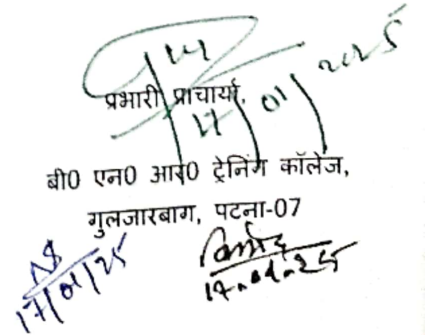 17/01/2025
प्रभारी प्राचार्या,
बी0 एन0 आर0 ट्रेनिंग कॉलेज,
गुलजारबाग, पटना-07
17/01/25
17.01.25